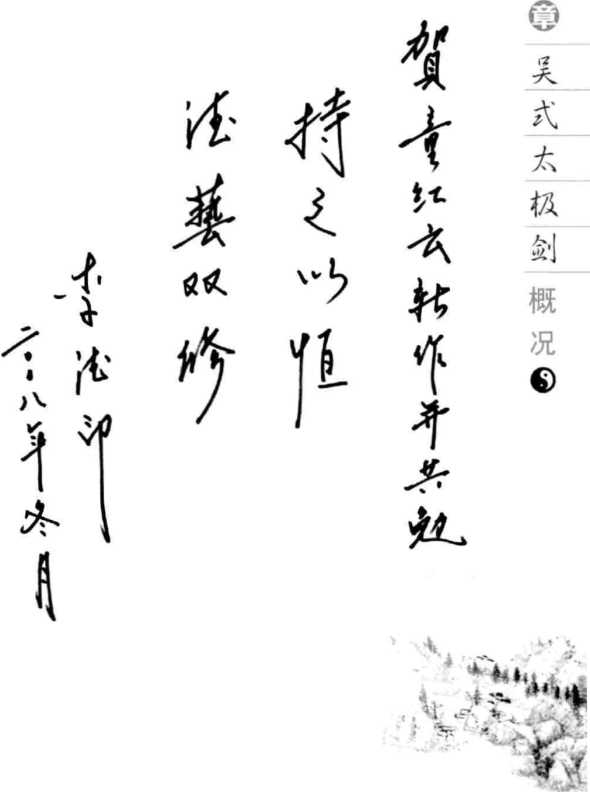 章
吴式太极剑
概况
贺童红云新作并共勉
持之以恒
德藝双修
李德印
二〇〇八年冬月